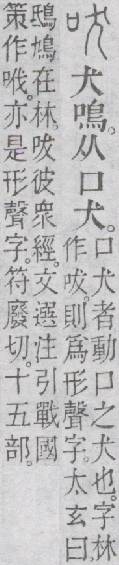 吠犬鳴。从口犬。
口犬者動口之犬也。字林
作㕹。則爲形聲字。太玄曰
鴟鳩在林。㕹彼衆經。文選注引戰國
策作。亦是形聲字。符廢切。十五部。